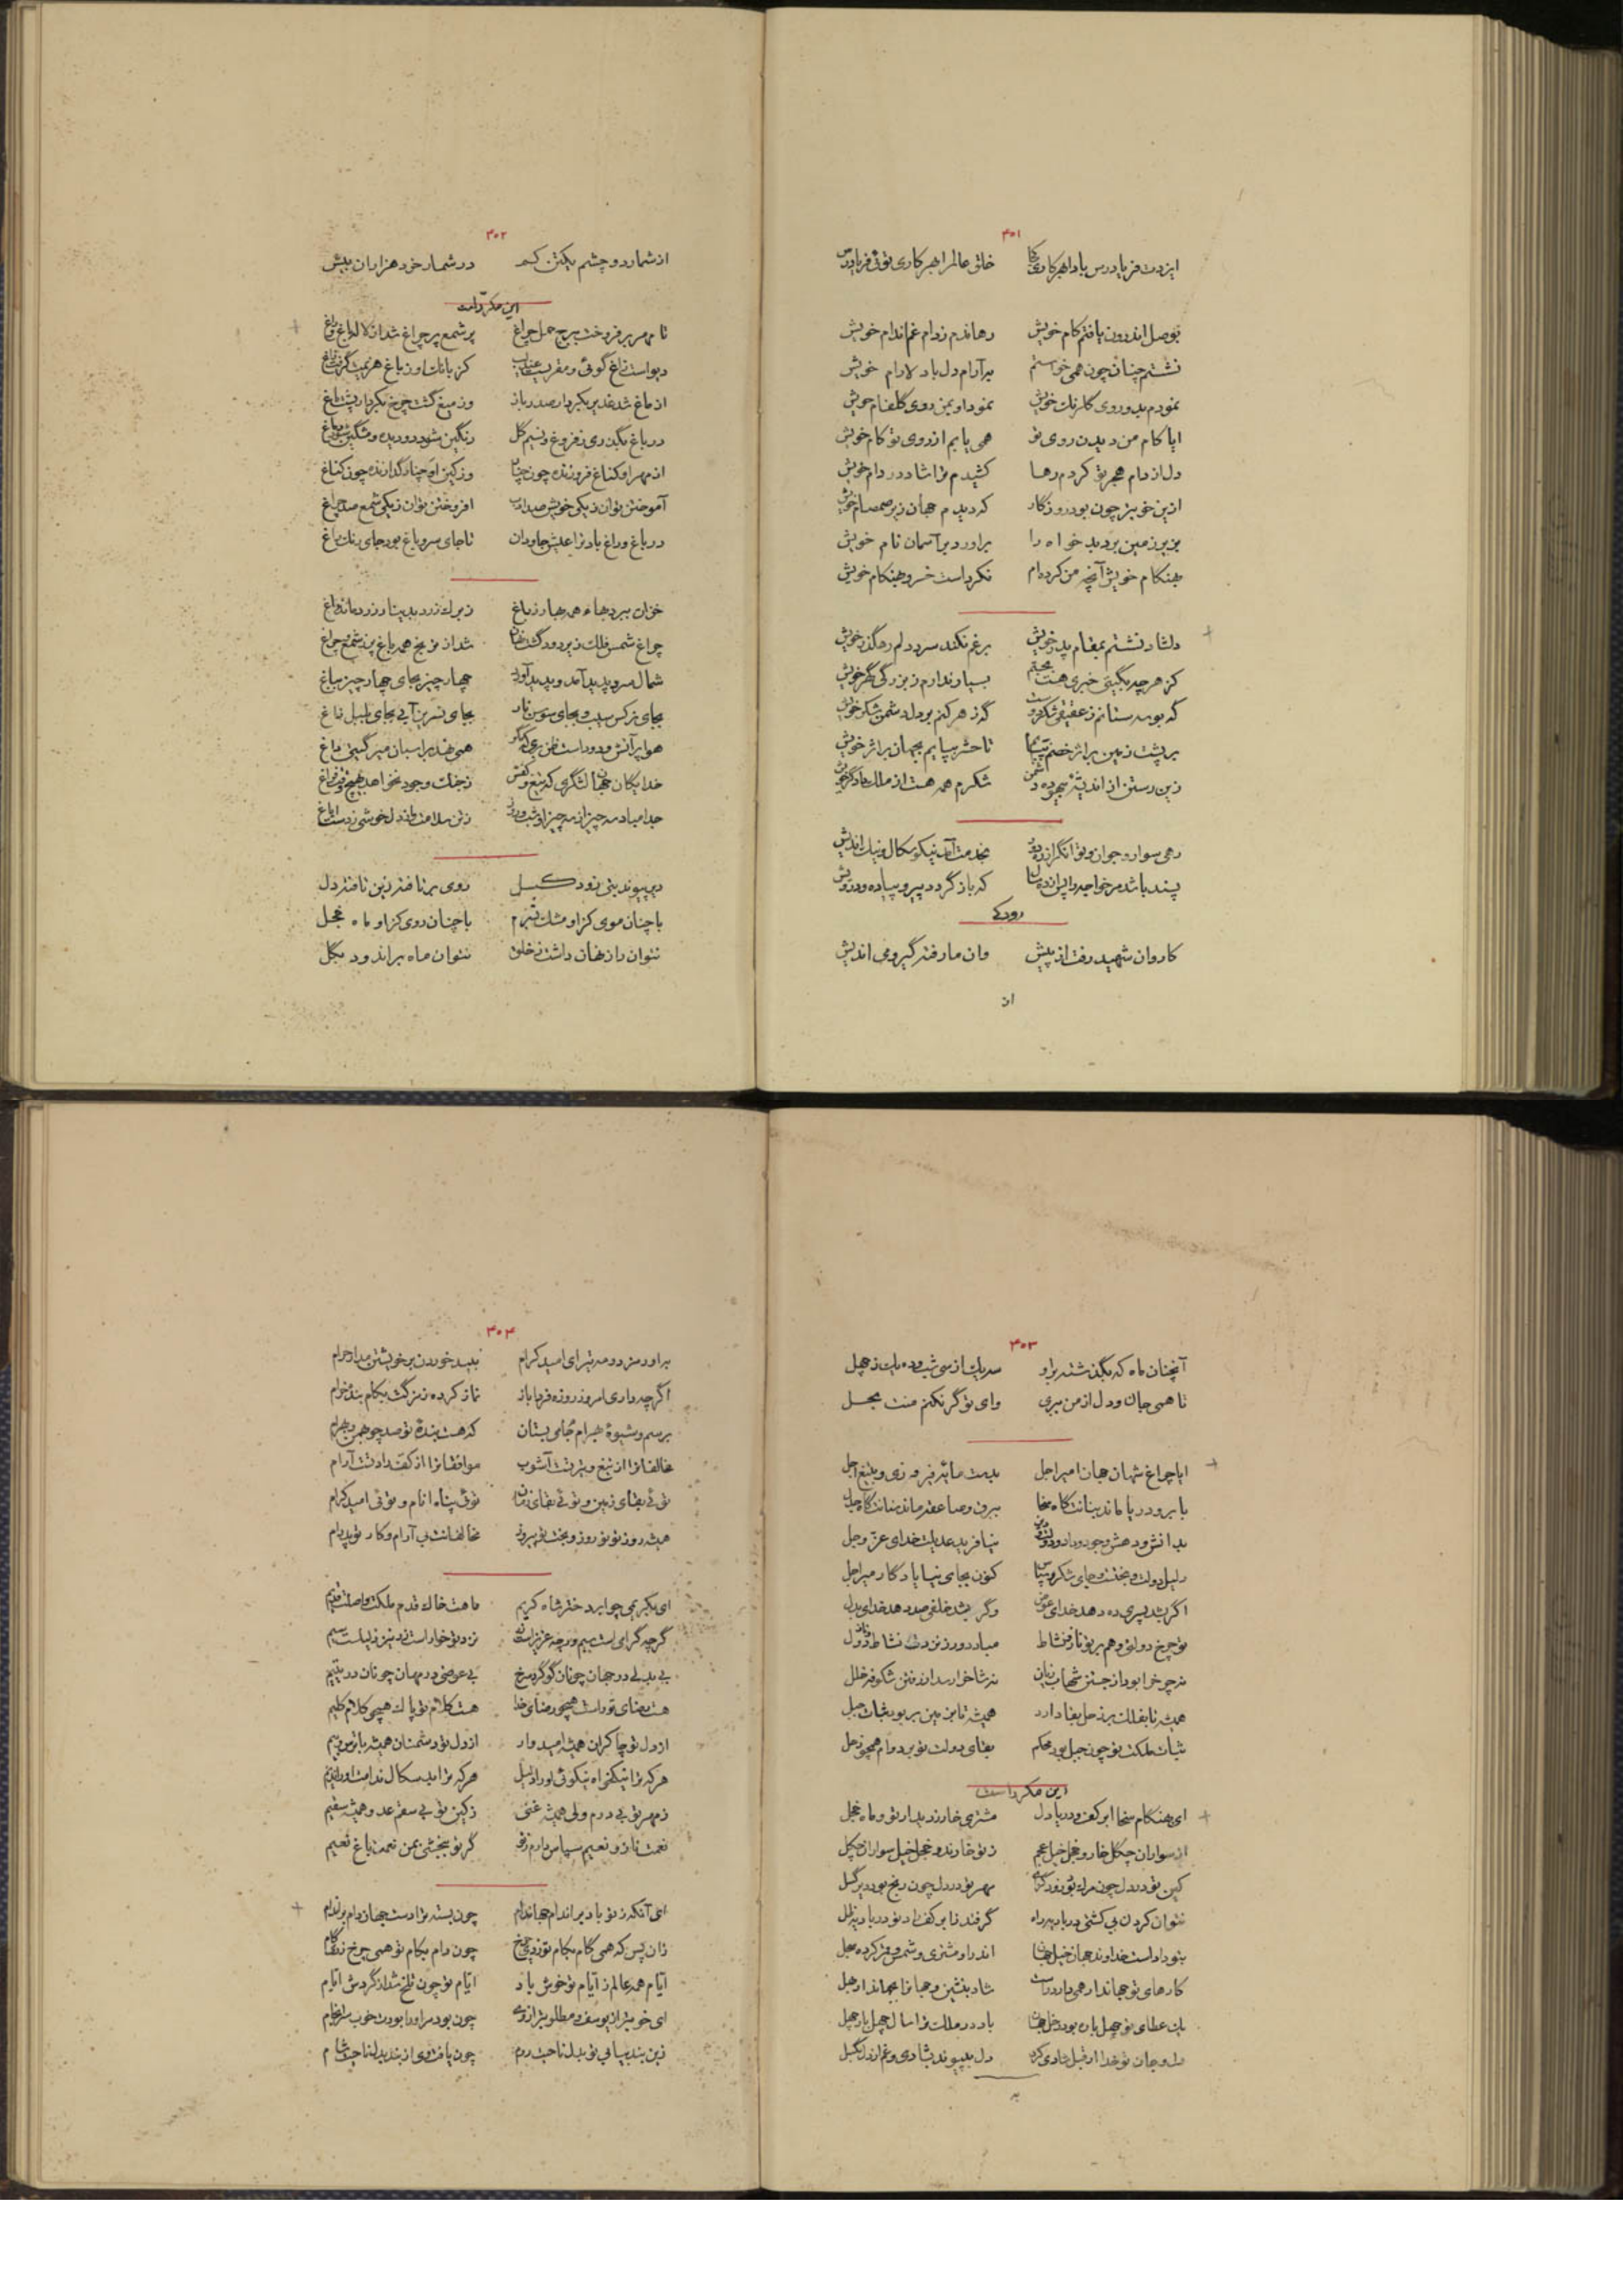 ۳۰۱
ایزدت فریادرس بادا بهر کاری کجا خلق عالم را بهر کاری توئی فریادرس
بوصل اندرون یافتم کام خویش رهاندم ز دام غم اندام خویش
نشستم چنان چون همی خواستم برآرام دل با دلارام خویش
نمودم بدو روی گلرنگ خویش نمود او بمن روی گلفام خویش
ایا کام من دیدن روی تو همی یابم از روی تو کام خویش
دل از دام هجر تو کردم رها کشیدم ترا شاد در دام خویش
ازین خوبتر چون بود روزگار که دیدم جهان زیر صمصام خویش
بزیر زمین برد بدخواه را برآورد بر آسمان نام خویش
بهنگام خویش آنچه من کرده‌ام نکرد است خسرو بهنگام خویش
دلشاد نشستم بمقام پدر خویش برغم نکند سرد دلم رهگذر خویش
کز هر چه بگیتی خبری هست بجستم بسیار ندارم ز بزرگی گهر خویش
گه بوسه ستانم ز عقیقی شکر دوست گه زهر کنم بر دل دشمن شکر خویش
بر پشت زمین بر اثر خصم تا حشر بپایم بجهان بر اثر خویش
زین رستن از اندیشه بیهوده دشمن شکرم همه هست از ملک دادگر خویش
رهی سوار و جوان و توانگر از ره دور بخدمت آمد نیکو سگال و نیک اندیش
پسند باشد مر خواجه را پس از ده سال که باز گردد پیر و پیاده و درویش
رودکی
کاروان شهید رفت از پیش وان ما رفته گیر و می اندیش
از
۳۰۲
از شمار دو چشم یکتن کم در شمار خرد هزاران بیش
این مکرر است
تا مهر بر فروخت ببرج حمل چراغ پر شمع پر چراغ شد از لاله باغ و راغ
دیو است زاغ گوئی و مقریست عندلیب کز بانک او ز باغ هزیمت گرفت زاغ
از ماغ شد غدیر بکردار صدر باز وز میغ گشت چرخ بکردار پشت ماغ
در باغ بگذری ز فروغ و نسیم گل رنگین شود دو دیده و مشگین شود دماغ
از مهر او کناغ فروزنده چون چنار وز کین او چنار گدازنده چون کناغ
آموختن توان ز یکی خویش صد ادب افروختن توان ز یکی شمع صد چراغ
در باغ و راغ باد ترا عیش جاودان تا جای سرو باغ بود جای رنگ راغ
خزان ببرد بهاء همه بهار ز باغ ز برک زرد پدینار زرد ماند راغ
چراغ شمس فلک زیر دود گشت نهان شد از ترنج همه باغ پر ز شمع و چراغ
شمال سرد پدید آمد و پدید آورد چهار چیز بجای چهار چیز بباغ
بجای نرکس سیب و بجای سوسن نار بجای نسرین آبی بجای بلبل زاغ
خدایگان جهان لشگری که تیغ و کفش ز جنک وجود نخواهد هیچ وقت فراغ
جدا مباد سه چیز از سه چیز او شب و روز ز تن سلامت و از دل خوشی ز دست ایاغ
دیر پیوند بتی زود گسل روی برتافته زین تافته دل
با چنان موی کزاو مشک بشرم با چنان روی کزاو ماه خجل
نتوان راز نهان داشت ز خلق نتوان ماه براندود بگل
۳۰۳
آنچنان ماه که بگذشته بر او سه یک از سی شب و ده یک ز چهل
تا همی جان و دل از من ببری وای تو گر نکنم منت بحل
ایا چراغ شهان جهان امیر اجل بدست مایه فیروزی و بتیغ اجل
بابر و دریا ماند بنانت گاه سخا ببرق و صاعقه ماند سنانت گاه جدل
بدانش و دهش وجود و داد و دین نیافرید عدیلت خدای عز و جل
دلیل دولت و بختست و جای شکر و سپاس کنون بجای نیا یادگار میر اجل
اگر بشد پسری ده دهد خدای عوض وگر بشد خلفی صد دهد خدای بدل
تو چرخ دولتی و هم بر تو ناز و نشاط مباد دور ز تو در نشاط و ناز دول
نه چرخ را بود از جستن شهاب زیان نه شاخ را رسد از رفتن شکوفه خلل
همیشه تا بفلک بر زحل بقا دارد همیشه تا بزمین بر بود ثبات جبل
ثبات ملکت تو چون جبل بود محکم بقای دولت تو بر دوام همچو زحل
این مکرر است
ای بهنگام سخا ابر کف و دریا دل مشتری خار ز دیدار تو و ماه خجل
از سواران چگل خار و خجل خیل عجم ز تو خارند و خجل خیل سواران چگل
کین تو در دل چون مرک تو زود گرای مهر تو در دل چون رنج بود دیر گسل
نتوان کردن بی کشتی دریا دیده راه گرفتد تابر کف راد تو دریا دیده ظل
بتو داد است خداوند جهان خیل جهان اندر او مشتری و شمس و قمر کرده سجل
کارهای تو جهاندار همی دارد راست شاد بنشین و جهان را بجهاندار بهل
یک عطای تو چهل باره بود دخل جهان باد در ملک ترا سال چهل بار چهل
دل و جان تو خدا از قبل شادی کرد دل بپیوند بشادی و غم از دل بگسل
به
۳۰۴
برآورد مزد و مه تیر ای امید کرام نبید خوردن بر خویشتن مدار حرام
اگر چه داری امروز روزه فردا باز نماز کرده ز مزگت بکام بنده خرام
برسم و شیوه بهرام جام می بستان که هست بنده تو صد چو بهمن و بهرام
مخالفانرا از تیغ و تیر تست آشوب موافقانرا از کف راد تست آرام
توئی بقای زمین و توئی بقای زمان توئی پناه انام و توئی امید کرام
همیشه روز تو نوروز و بخت تو پیروز مخالفانت بی آرام و کار تو پدرام
ای بکبر بمی چو ایرد دختر شاه کریم ماهت خاک قدم ملکت و اصلت قدیم
بی بدلی در جهان چونان گوگرد سرخ بی عوضی در مهان چونان در یتیم
هست رضای تو راست همچو رضای خدا هست کلام تو پاک همچو کلام کلیم
از دل تو چاکران همیشه امیدوار از دل تو دشمنان همیشه با ترس و بیم
هر که ترا نیکخواه نیکوئی او را دلیل هر که ترا بد سگال ندامت او را ندیم
ز مهر تو بی درم ولی همیشه غنی ز کین تو بی سقم عدو همیشه سقیم
نعمت ناز و نعیم سپاس دارم ز تو گر تو ببخشی بمن نعمت باغ نعیم
ای آنکه ز تو باد بر اندام جهاندام چون بسته ترا دست جهان دام بر اندام
زان پس که همی گام بکام تو زدی چرخ چون دام بکام تو همی چرخ زند گام
ایام همه عالم ز ایام تو خوش باد ایام تو چون تلخ شد از گردش ایام
ای خوبتر از یوسف و مظلوم‌تر از وی چون بود سر او را بودت خوب سرانجام
زین بند بیابی تو بدل تا حبت روم چون یافت وی از بند بدل ناحیت شام